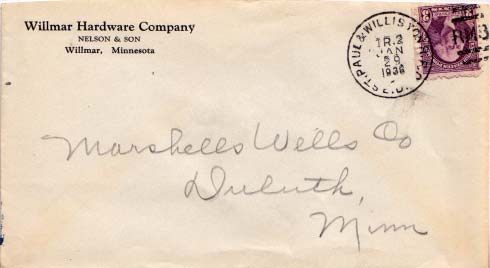 Willmar Hardware Company
NELSON & SON
Willmar, Minnesota
ST. PAUL & WILLISTON
TR.2
JAN
29
1936
E.D.
Marshells Wells Co
Duluth,
Minn